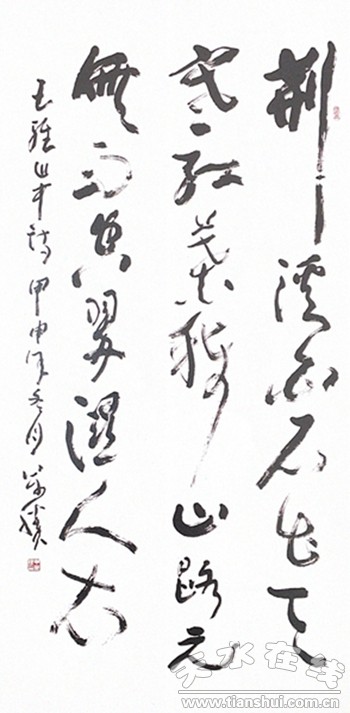 荆溪白石出天
寒红葉稀山路元
無雨空翠湿人衣
王維山中诗 甲申年冬月
天水在线
www.tianshui.com.cn